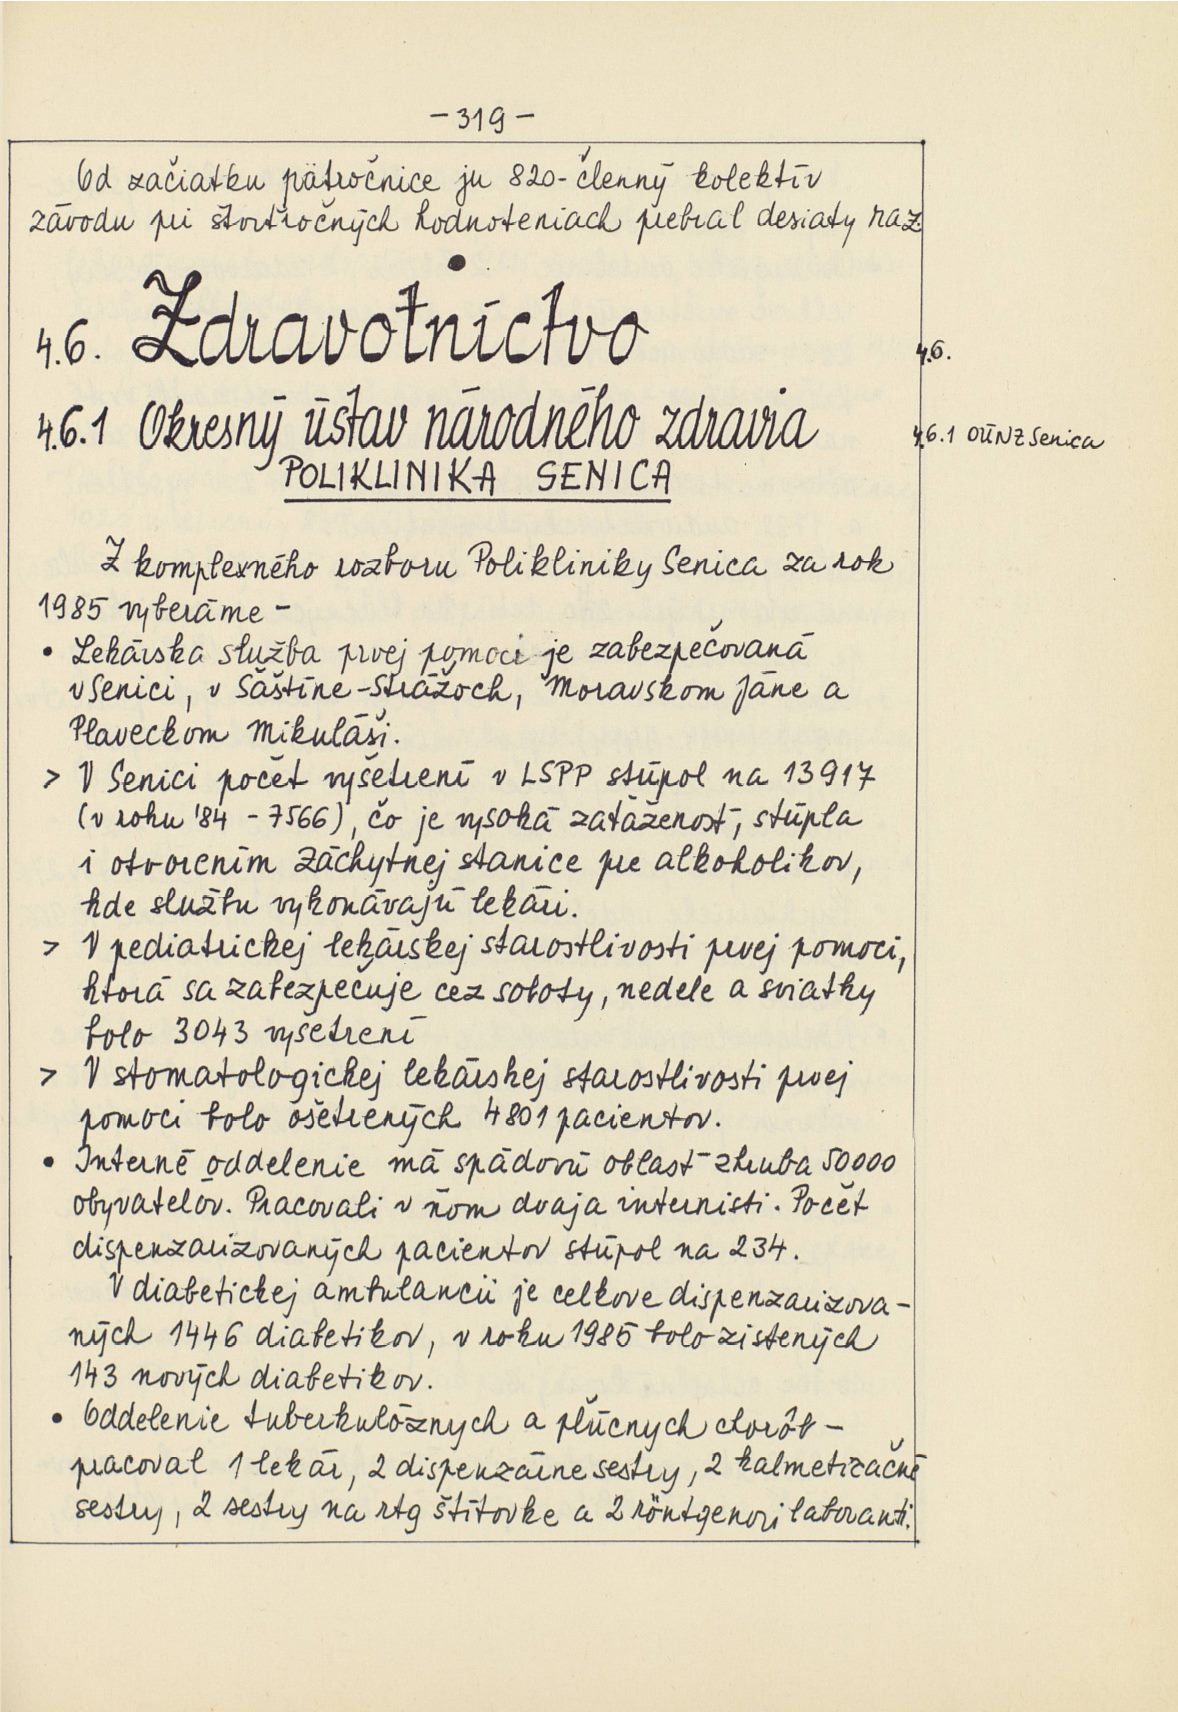 - 319 -
Od začiatku pätročnice ju 820-členný kolektív
závodu pri štvrťročných hodnoteniach prebral desiaty raz.
4.6. Zdravotníctvo
4.6.
4.6.1 Okresný ústav národného zdravia
4.6.1 OÚNZ Senica
POLIKLINIKA SENICA
Z komplexného rozboru Polikliniky Senica za rok
1985 vyberáme -
• Lekárska služba prvej pomoci je zabezpečovaná
v Senici, v Šaštíne-Strážoch, Moravskom Jáne a
Plaveckom Mikuláši.
> V Senici počet vyšetrení v LSPP stúpol na 13917
(v roku '84 - 7566), čo je vysoká zaťaženosť, stúpla
i otvorením Záchytnej stanice pre alkoholikov,
kde službu vykonávajú lekári.
> V pediatrickej lekárskej starostlivosti prvej pomoci,
ktorá sa zabezpečuje cez soboty, nedele a sviatky
bolo 3043 vyšetrení
> V stomatologickej lekárskej starostlivosti prvej
pomoci bolo ošetrených 4801 pacientov.
• Interné oddelenie má spádovú oblasť zhruba 50000
obyvateľov. Pracovali v ňom dvaja internisti. Počet
dispenzarizovaných pacientov stúpol na 234.
V diabetickej ambulancii je celkove dispenzarizova-
ných 1446 diabetikov, v roku 1985 bolo zistených
143 nových diabetikov.
• Oddelenie tuberkulóznych a pľúcnych chorôb -
pracoval 1 lekár, 2 dispenzárne sestry, 2 kalmetizačné
sestry, 2 sestry na rtg štítovke a 2 röntgenoví laboranti.